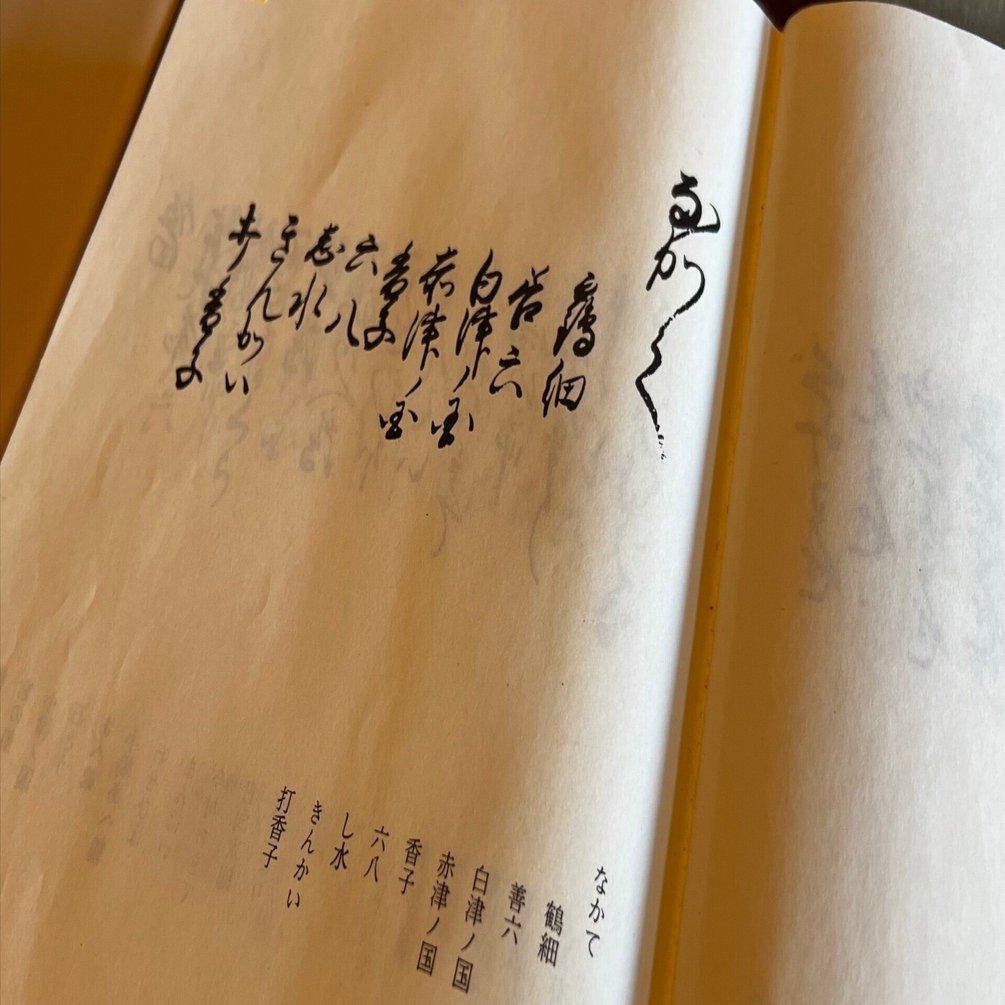 なかて
鶴細
善六
白津ノ国
赤津ノ国
香子
六八
し水
きんかい
打香子
なかて
鶴細
善六
白津ノ国
赤津ノ国
香子
六八
し水
きんかい
打香子